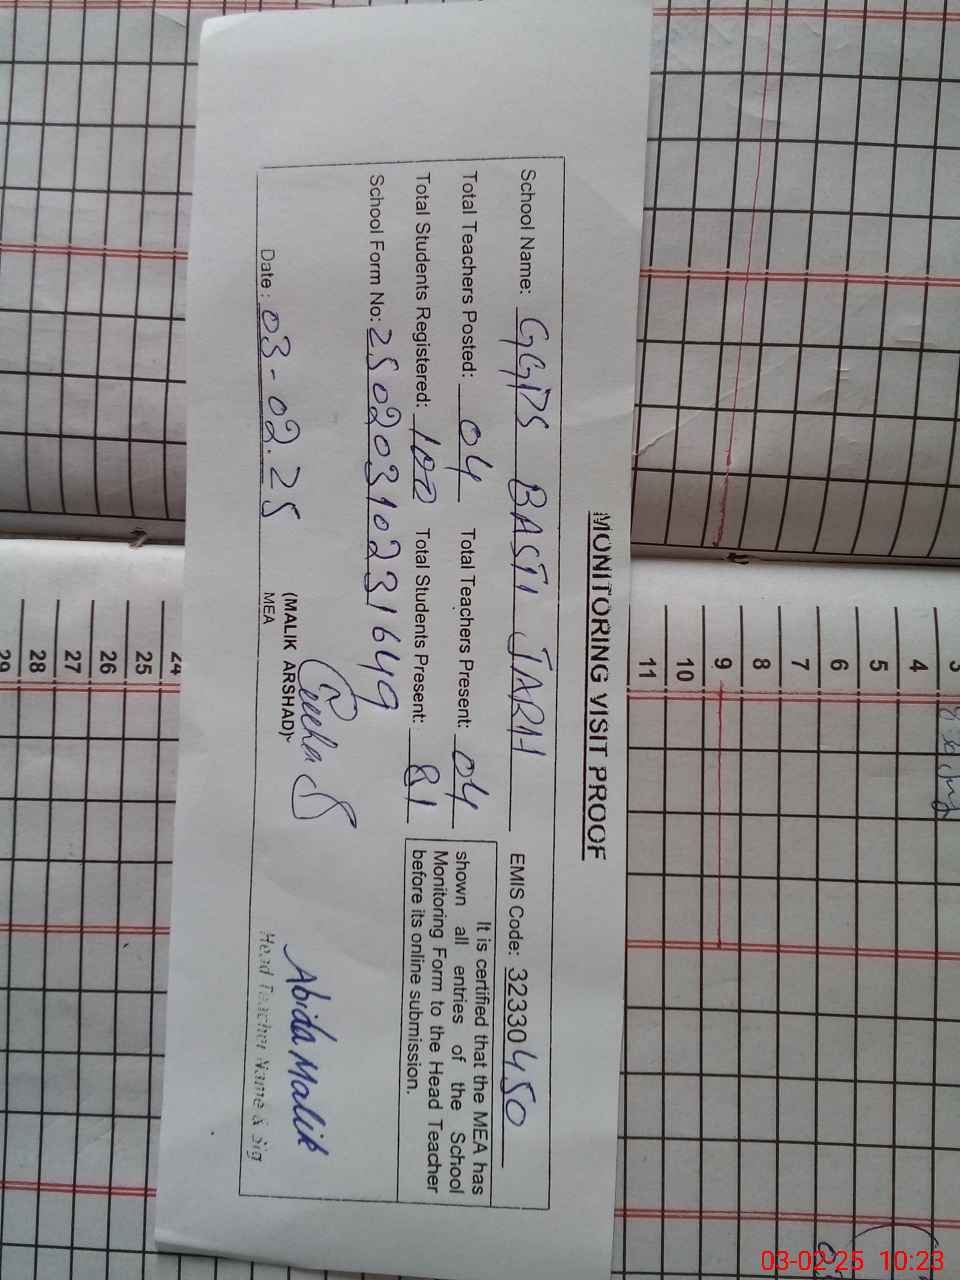 MONITORING VISIT PROOF
School Name: GGPS BASTI JARH EMIS Code: 32330450
Total Teachers Posted: 04 Total Teachers Present: 04
Total Students Registered: 100 Total Students Present: 81
School Form No: 25020310231649
It is certified that the MEA has
shown all entries of the School
Monitoring Form to the Head Teacher
before its online submission.
Date: 03-02.25
(MALIK ARSHAD)
MEA
Abida Malik
Head Teacher Name & Sig
3
4
5
6
7
8
9
10
11
24
25
26
27
28
29
03-02-25 10:23